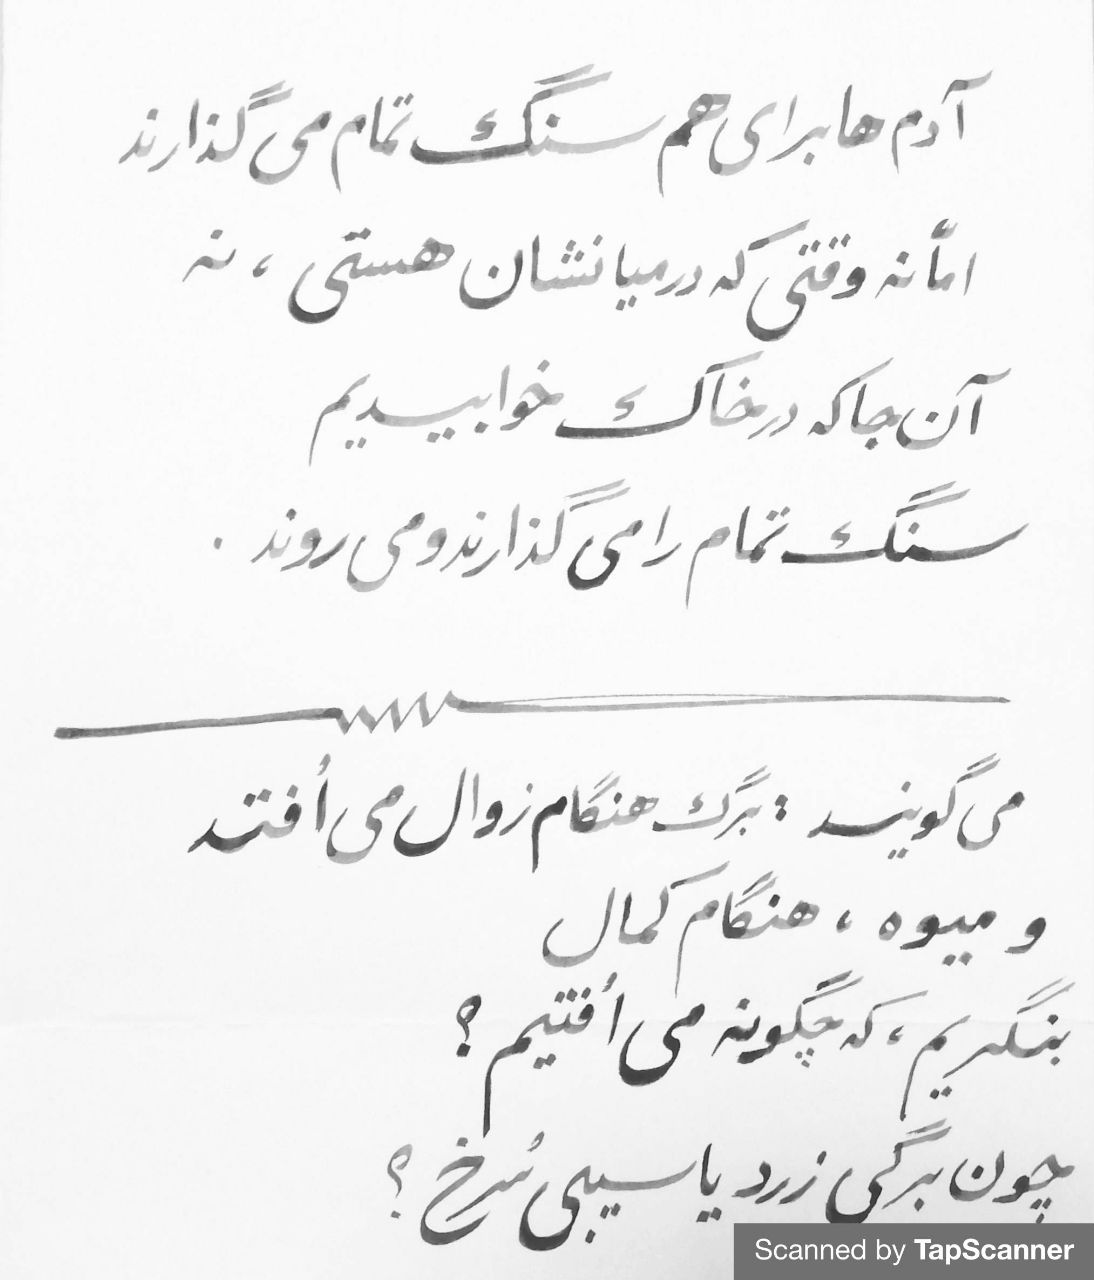 آدم ها برای هم سنگ تمام می گذارند
امّا نه وقتی که در میانشان هستی ، نه
آن جا که در خاک خوابیدیم
سنگ تمام را می گذارند و می روند .
می گویند : برگ هنگام زوال می اُفتد
و میوه ، هنگام کمال
بنگریم ، که چگونه می اُفتیم ؟
چون برگی زرد یا سیبی سُرخ ؟
Scanned by TapScanner